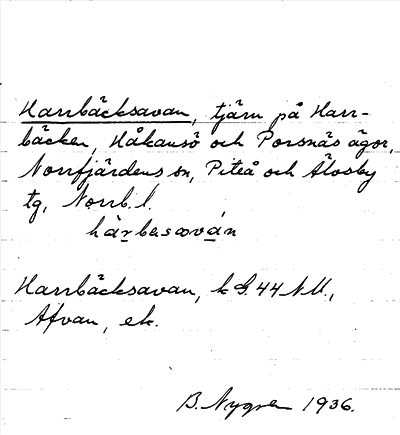 Harrbäcksavan, tjärn på Harr-
bäcken, Håkansö och Porsnäs ägor,
Norrfjärdens sn, Piteå och Älvsby
tg, Norrb. l.
Harrbäcksavan, k G. 44 N.U.,
Afvan, ek.
B. Nygren 1936.